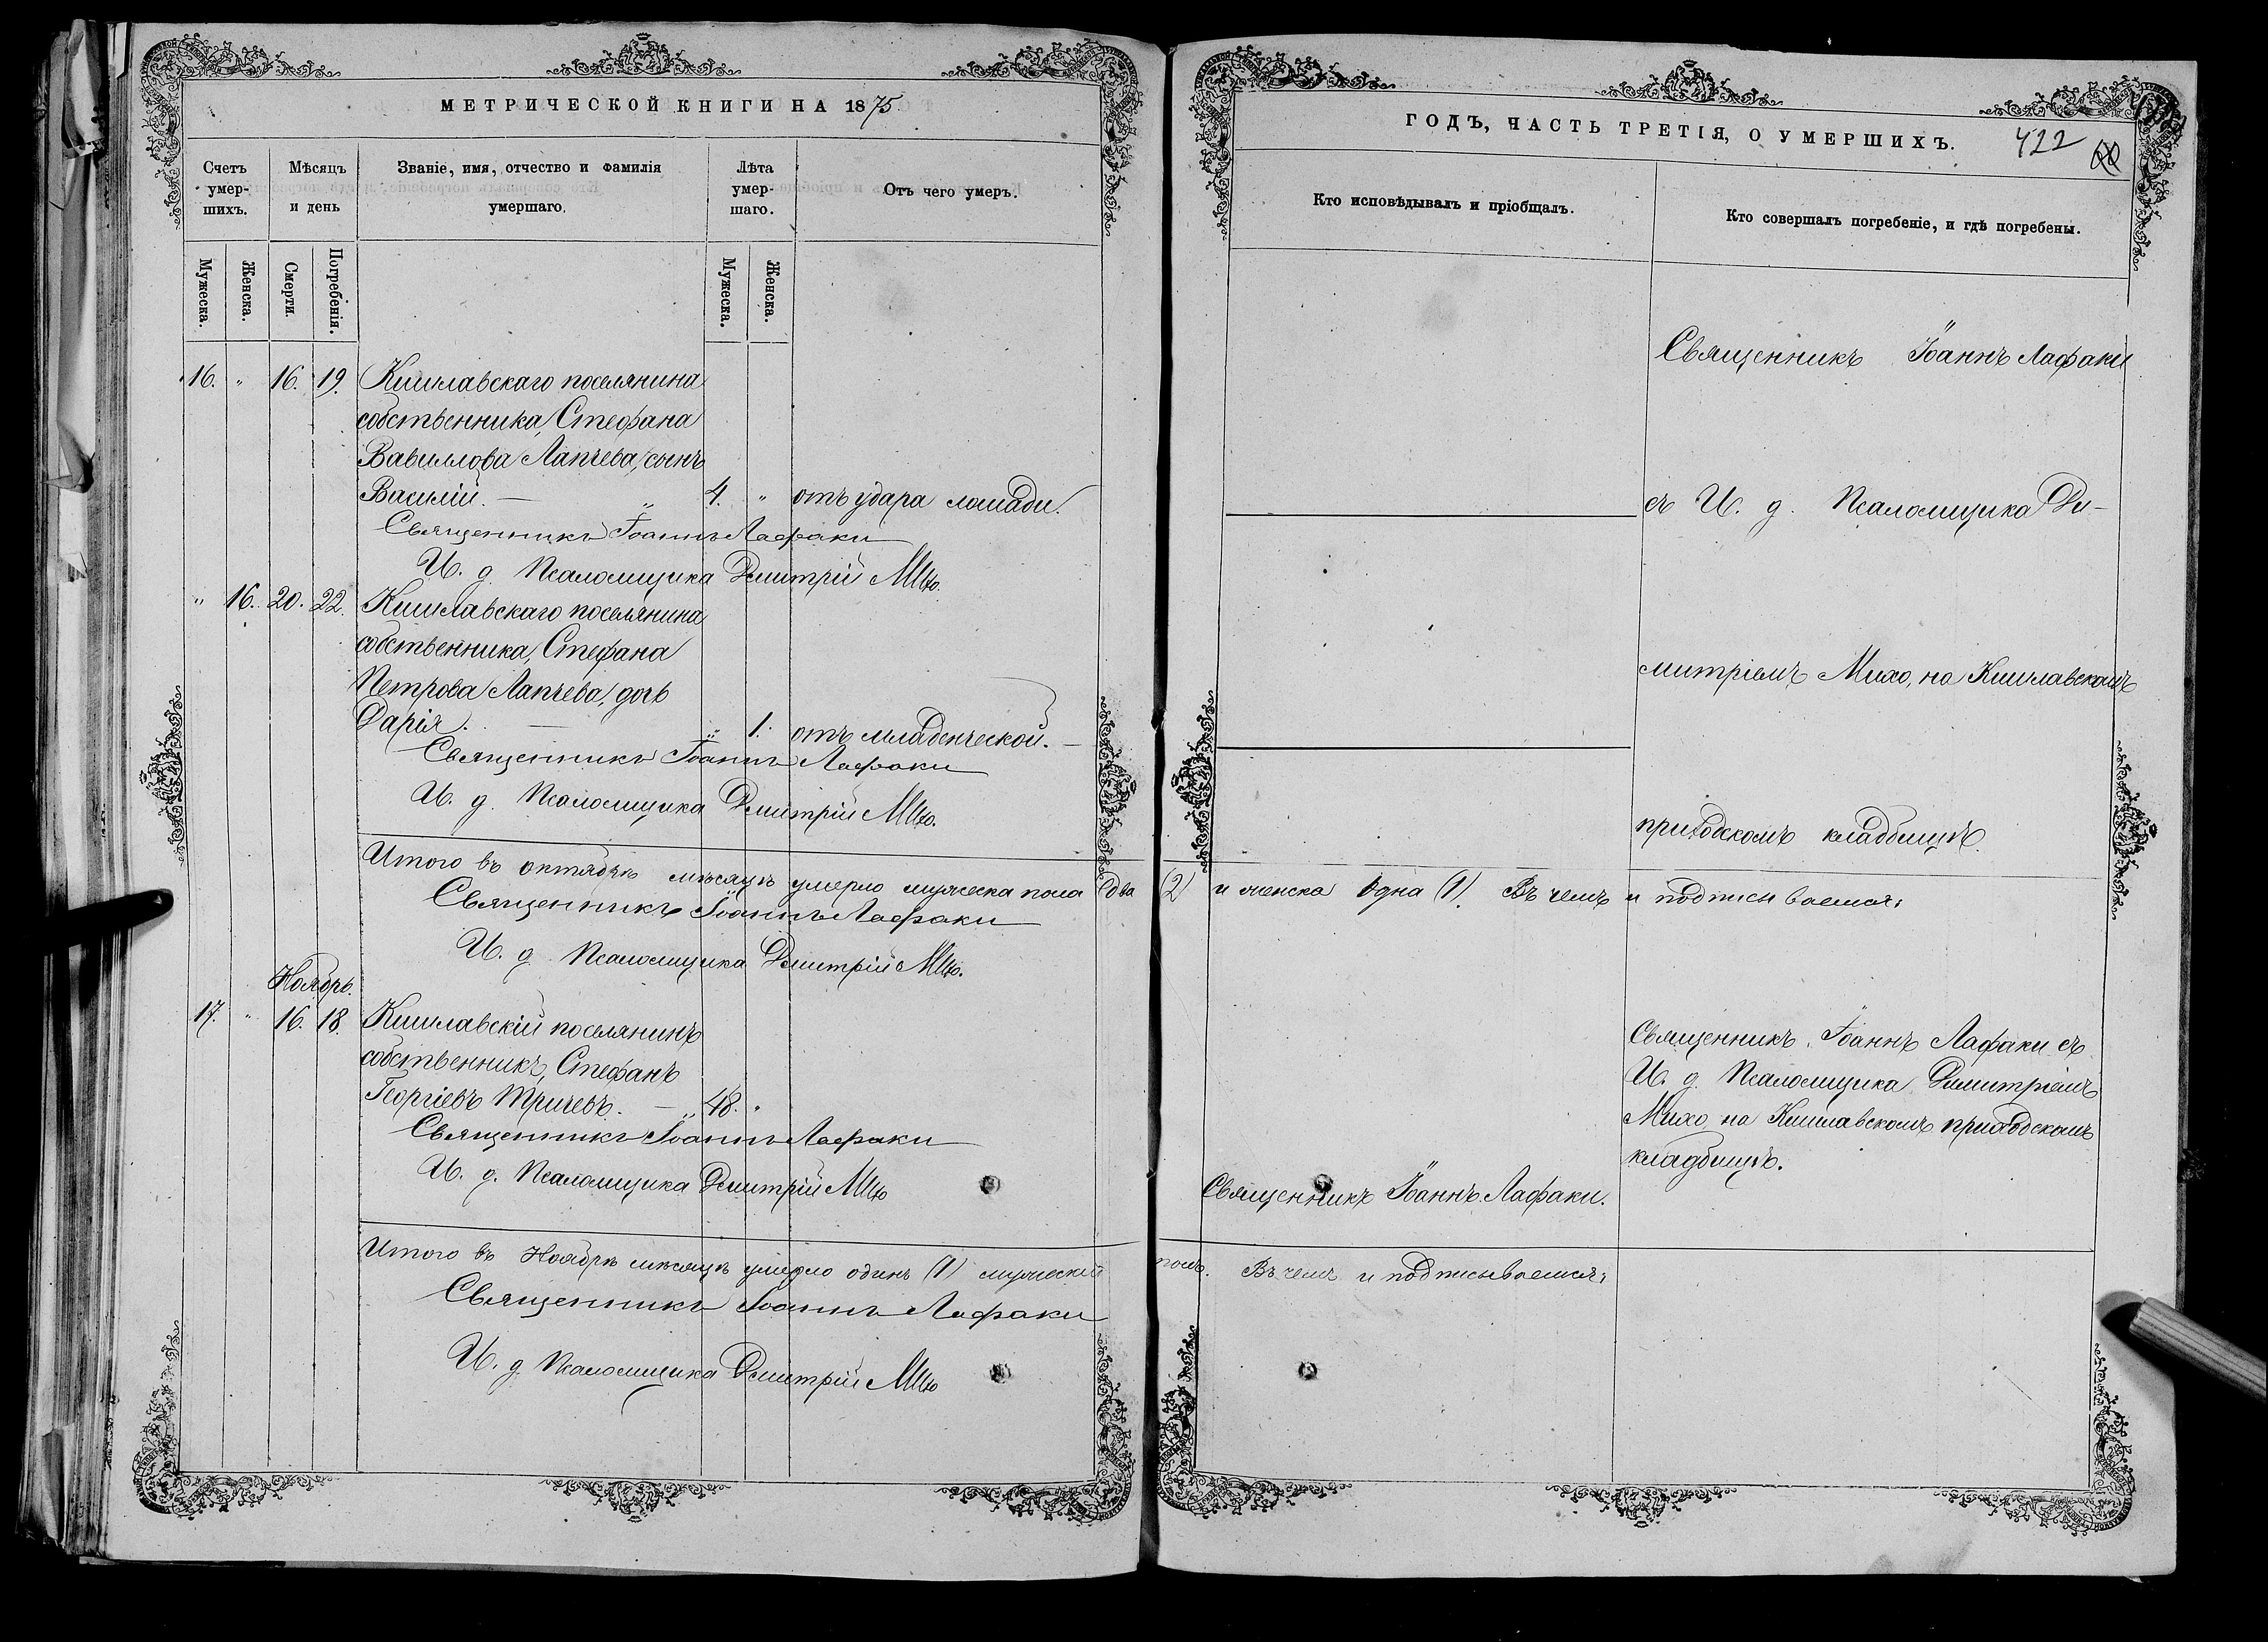 МЕТРИЧЕСКОЙ КНИГИ НА 1875
Счетъ умер-шихъ.
Мѣсяцъ и день
Званіе, имя, отчество и фамилія умершаго.
Лѣта умер-шаго.
Отъ чего умеръ.
Мужеска.
Женска.
Смерти.
Погребенія.
Мужеска.
Женска.
16. " 16. 19. Кишлавскаго поселянина
собственника, Стефана
Вавилова Лапчева, сынъ
Василій. — " 4. " отъ удара лошади.
Священникъ Іоаннъ Лафаки
И. д. Псаломщика Дмитрій Михо.
" 16. 20. 22. Кишлавскаго поселянина
собственника, Стефана
Петрова Лапчева, дочь
Дарія. — " 1. отъ младенческой. —
Священникъ Іоаннъ Лафаки
И. д. Псаломщика Дмитрій Михо.
Итого въ октябрѣ мѣсяцѣ умерло мужеска пола два
Священникъ Іоаннъ Лафаки
И. д. Псаломщика Дмитрій Михо.
Ноябрь.
17. " 16. 18. Кишлавскій поселянинъ
собственникъ, Стефанъ
Георгіевъ Тричевъ. — " 48. "
Священникъ Іоаннъ Лафаки
И. д. Псаломщика Дмитрій Михо
Итого въ Ноябрѣ мѣсяцѣ умерло одинъ (1) мужескій
Священникъ Іоаннъ Лафаки
И. д. Псаломщика Дмитрій Михо
ГОДЪ, ЧАСТЬ ТРЕТІЯ, О УМЕРШИХЪ.
422
Кто исповѣдывалъ и пріобщалъ.
Кто совершалъ погребеніе, и гдѣ погребены.
Священникъ Іоаннъ Лафаки
съ И. д. Псаломщика Ди-
митріемъ Михо, на Кишлавскомъ
приходскомъ кладбищѣ.
(2) и женска одна (1). Въ чемъ и подписываемся:
Священникъ Іоаннъ Лафаки съ
И. д. Псаломщика Димитріемъ
Михо, на Кишлавскомъ приходскомъ
кладбищѣ.
Священникъ Іоаннъ Лафаки.
полъ. Въ чемъ и подписываемся: